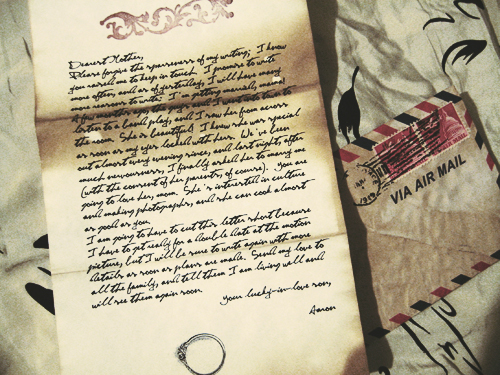 Dearest Mother,
Please forgive the sparseness of my writing; I know
you raised me to keep in touch. I promise to write
more often, and as of yesterday, I will have many
more reasons to write. I'm getting married, mom!
A few months ago, the guys and I went into town to
listen to a band play, and I saw her from across
the room. She is beautiful! I knew she was special
as soon as my eyes locked with hers. We've been
out almost every evening since, and last night, after
much nervousness, I finally asked her to marry me
(with the consent of her parents, of course). You are
going to love her, mom. She's interested in culture
and making photographs, and she can cook almost
as good as you.
I am going to have to cut this letter short because
I have to get ready for a double date at the motion
picture, but I will be sure to write again with more
details as soon as plans are made. Send my love to
all the family, and tell them I am living well and
will see them again soon.
Your lucky-in-love son,
Aaron
VIA AIR MAIL